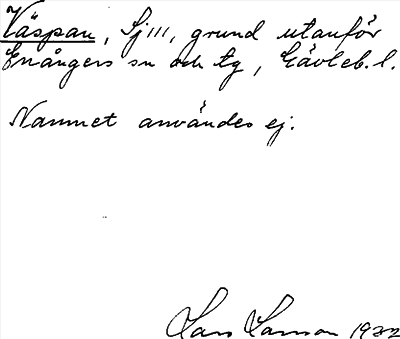 Väspan, Sj III, grund utanför
Enångers sn och tg, Gävleb. l.
Namnet användes ej.
Lars Larsson 1932